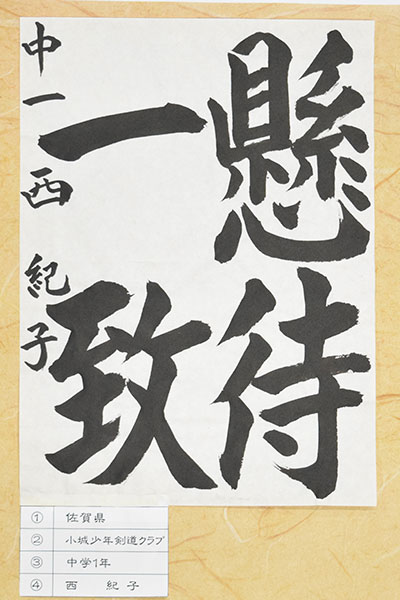 懸待
一致
中一 西 紀子
① 佐賀県
② 小城少年剣道クラブ
③ 中学1年
④ 西 紀子